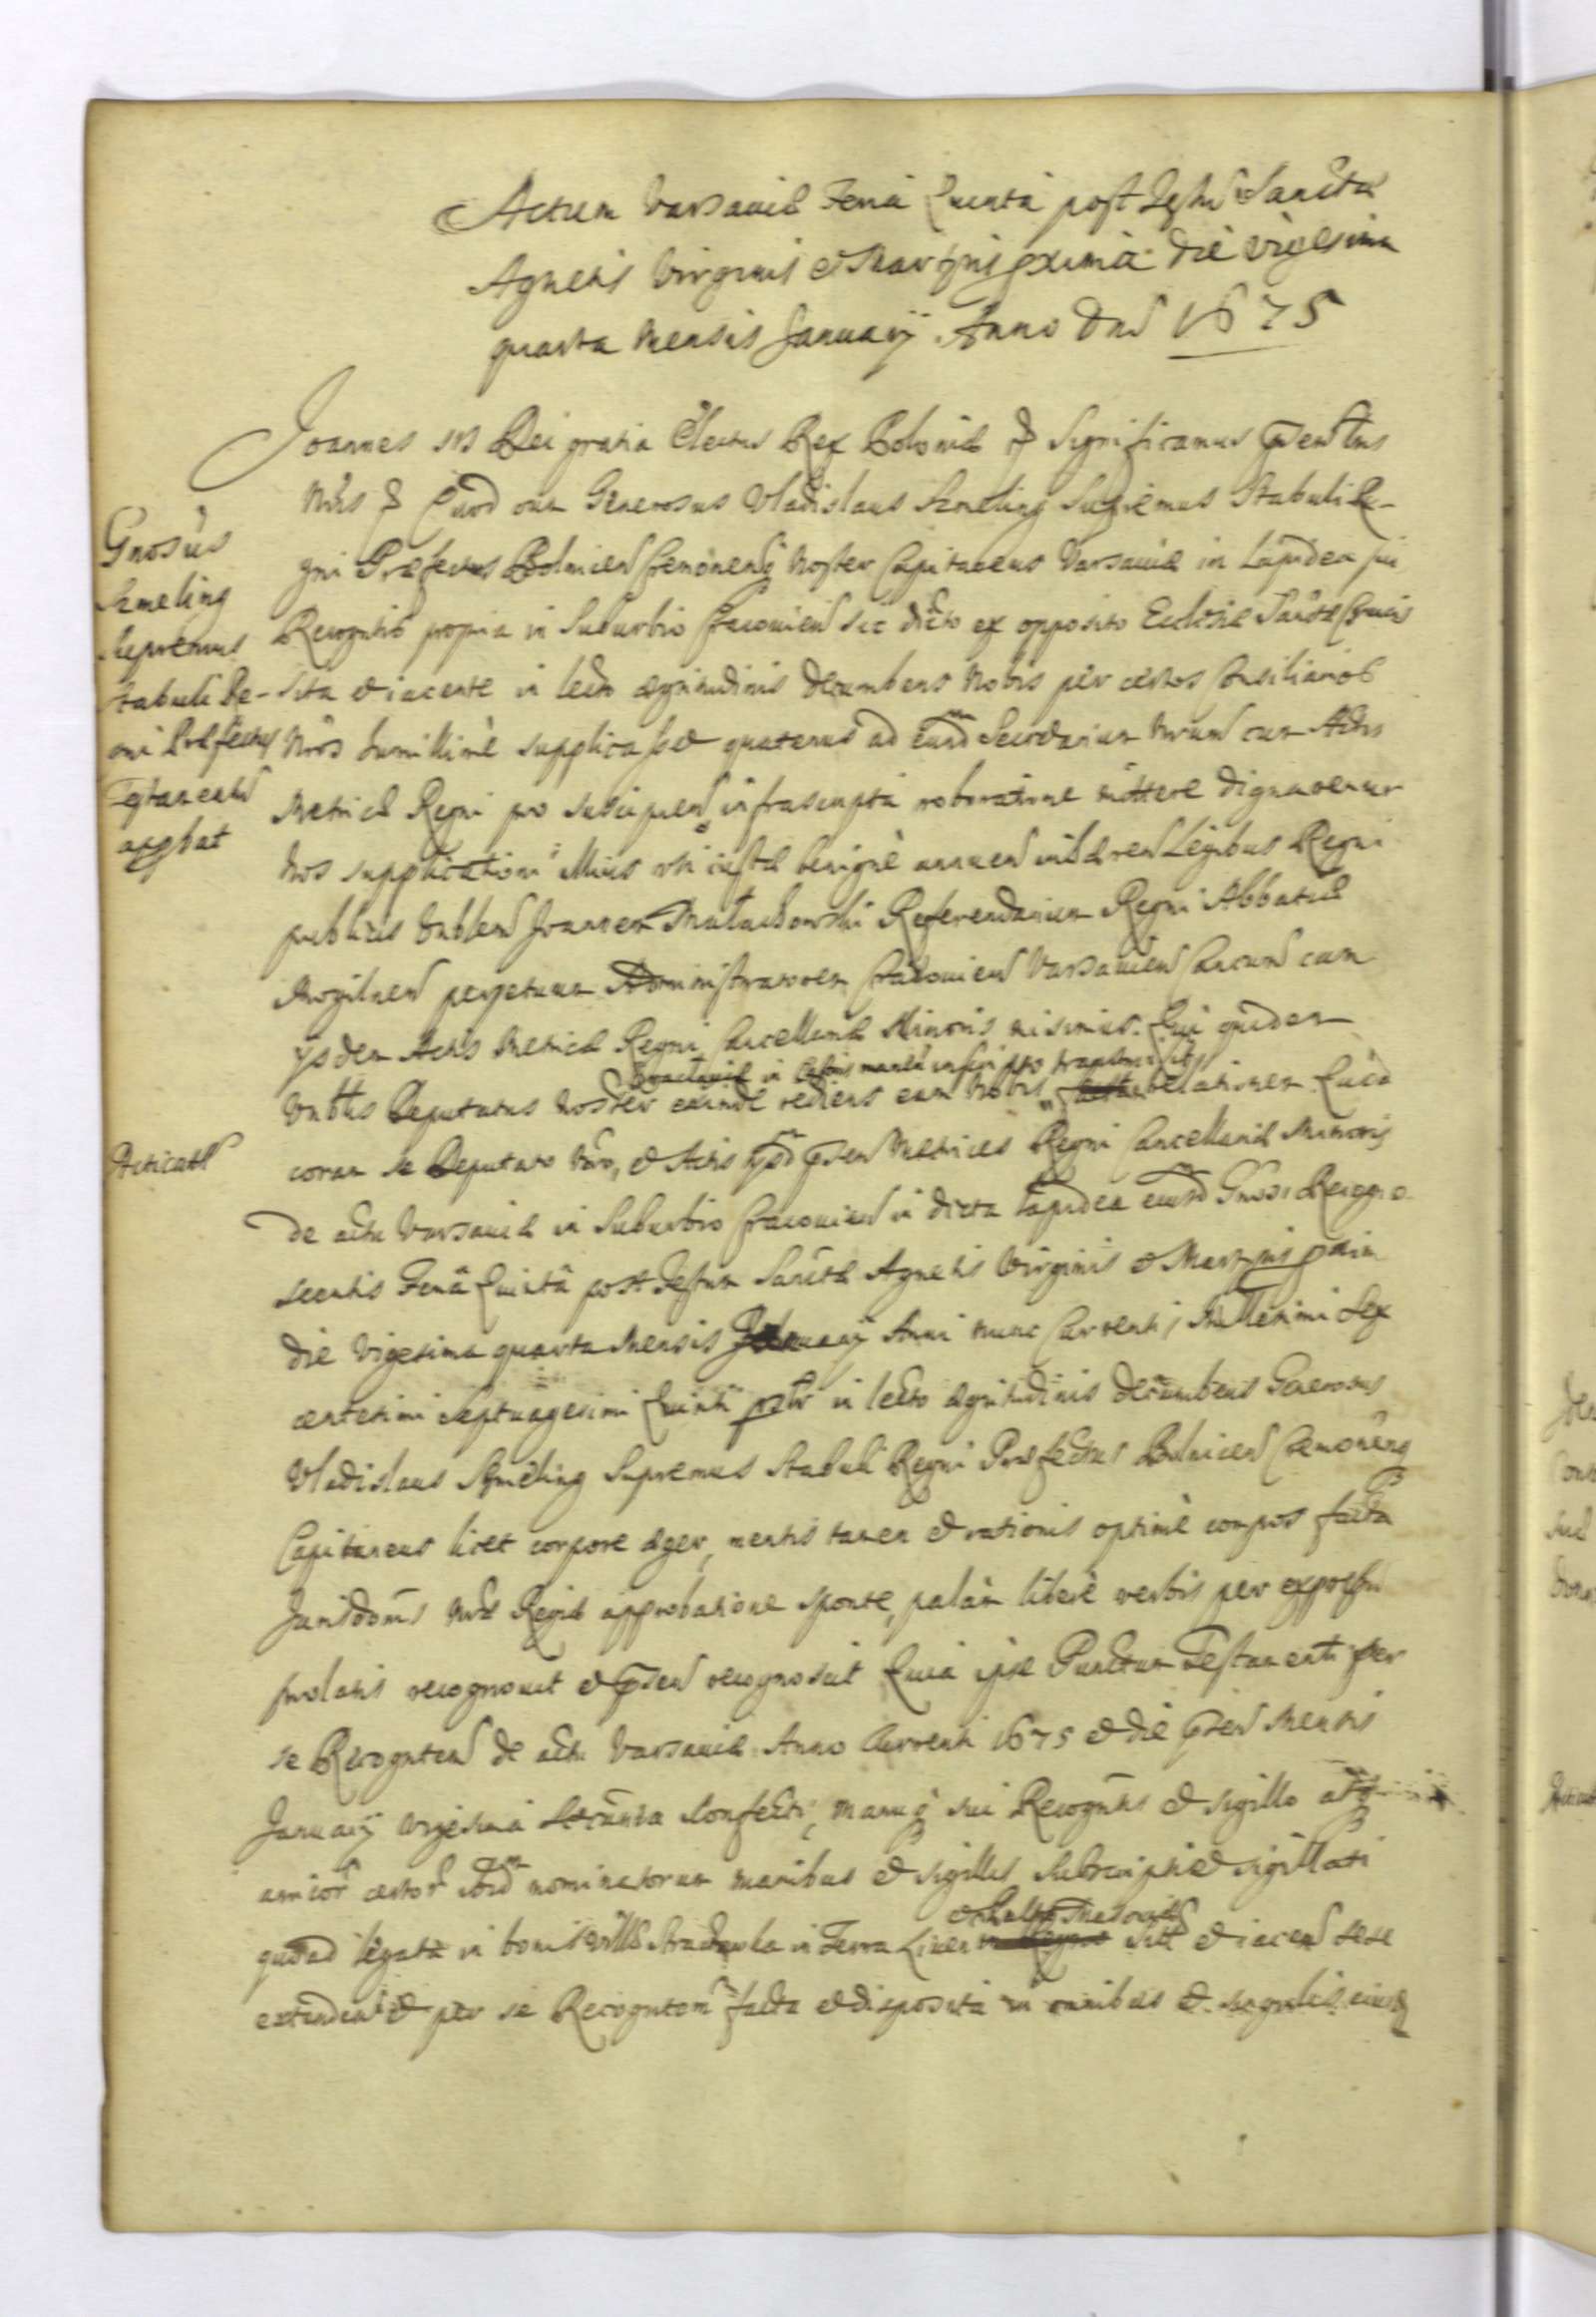 Actum Varsaviæ Feria Quinta post Festum Sanctæ
Agnetis Virginis et Martyris proxima die vigesima
quarta Mensis Januarij Anno Dni 1675
Joannes III Dei gratia Electus Rex Poloniæ &. Significamus præsentibus
Nris &. Quod cum Generosus Vladislaus Szmeling Supremus Stabuli Re-
gni Præfectus Bolnicen Noster Capitaneus Varsaviæ in Lapidea sui
Recogntis propria in Suburbio Cracovien sic dicto ex opposito Ecclesiæ Sanctæ Crucis
sita et iacente in lecto ægritudinis decumbens Nobis per certos Consiliarios
Nros humillime supplicasset quatenus ad eund Secretarium Nrum cum Actis
Metricæ Regni pro suscipien infrascripta roboratione mittere dignaremur
Nos supplicationi illius uti iustæ benigne annuen inhæren Legibus Regni
publicis Joannem Małachowski Referendarium Regni Abbatiæ
Mogilnen perpetuum Administratorem Cracovien Varsavien Canonicum cum
ijsdem Actis Metricæ Regni Cancellariæ Minoris misimus. Qui quidem
Deputatus Noster exinde rediens eam Nobis relationem Quod
coram se Deputato Nro, et Actis præsen Metrices Regni Cancellariæ Minoris
de actu Varsaviæ in Suburbio Cracovien in dicta lapidea eiusd Gnosi Recogno-
scentis Feria Quinta post Festum Sanctæ Agnetis Virginis et Martyris prxim
die Vigesima quarta Mensis Januarij Anni nunc Currentis Millesimi Sex
centesimi Septuagesimi Quinti psltr in lecto ægritudinis decumbens Generosus
Vladislaus Szmeling Supremus Stabuli Regni Præfectus Bolnicen
Capitaneus licet corpore æger, mentis tamen et rationis optime compos facta
Jurisdonis Nræ Regiæ approbatione sponte, palam libere verbis per expressum
prolatis recognovit et præsen recognoscit Quia ipse Punctum Testamenti per
se Recognten de actu Varsaviæ Anno Currenti 1675 et die præsen Mensis
Januarij vigesima Confecti, manuq sui Recogntis et sigillo
amicor certor ibid nominatorum manibus et sigillis subscripti et sigillati
quoad legata in bonis Villa in Terra Liven et iacen sese
extenden et per se Recogntem facta et disposita in omnibus et singulis eius
Gnosus
Szmeling
Supremus
Stabuli Re-
gni Præfectus
Testamentum
approbat
Acticat